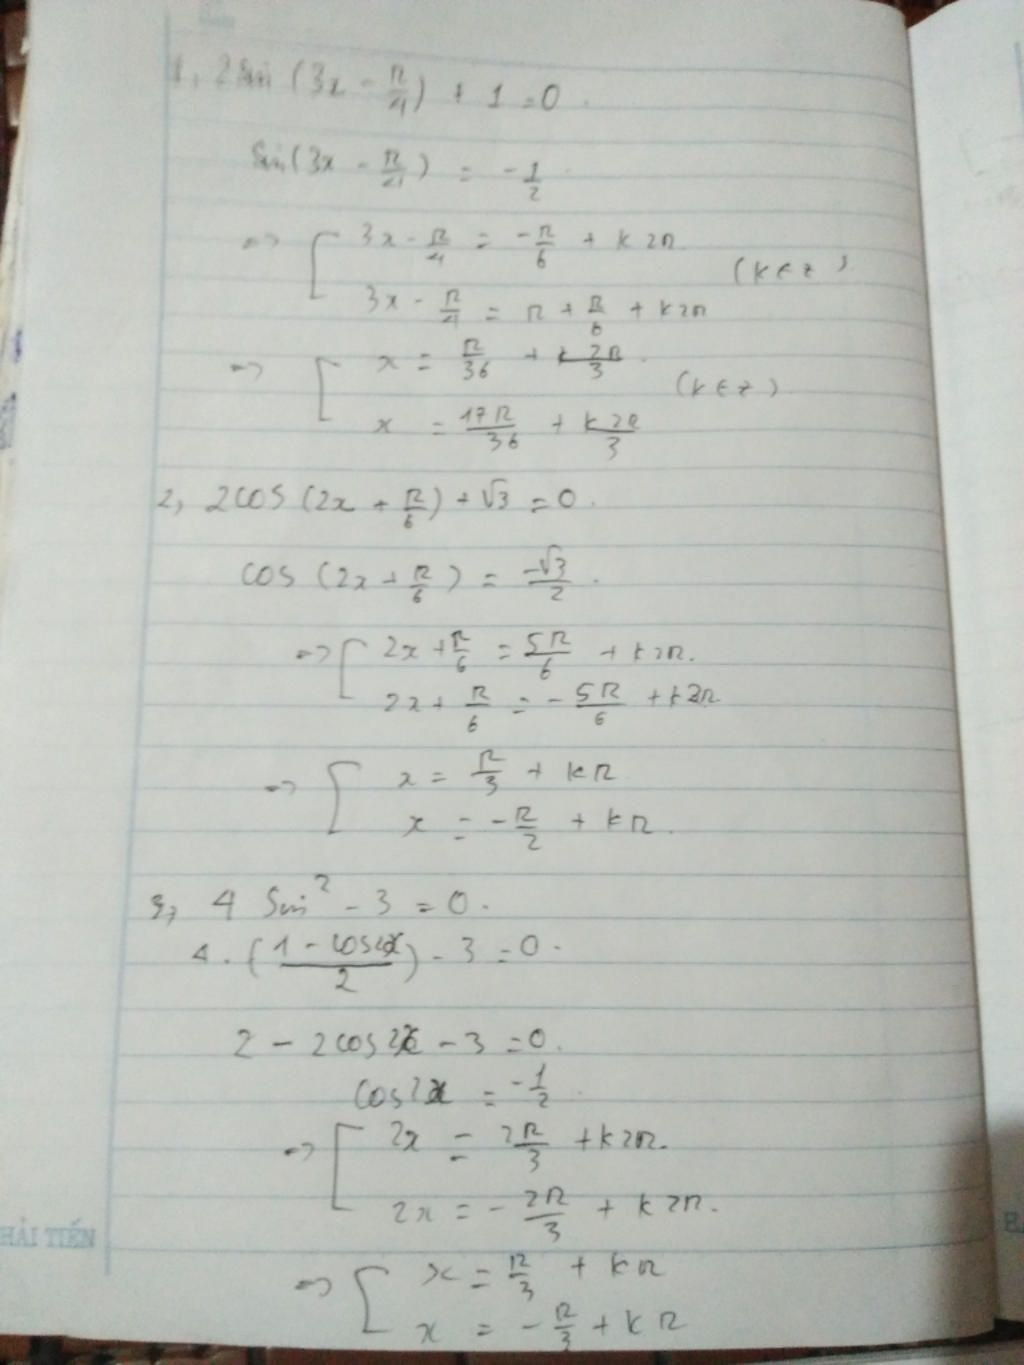 1, 2sin(3x - π/4) + 1 = 0.
sin(3x - π/4) = -1/2
=> [ 3x - π/4 = -π/6 + k2π.
(k ∈ z).
3x - π/4 = π + π/6 + k2π
=> [ x = π/36 + k2π/3.
(k ∈ z).
x = 17π/36 + k2π/3
2, 2cos(2x + π/6) + √3 = 0.
cos(2x + π/6) = -√3/2.
=> [ 2x + π/6 = 5π/6 + k2π.
2x + π/6 = -5π/6 + k2π
=> [ x = π/3 + kπ
x = -π/2 + kπ.
3, 4 sin² - 3 = 0.
4.(1 - cos2x/2) - 3 = 0.
2 - 2cos2x - 3 = 0.
cos2x = -1/2.
=> [ 2x = 2π/3 + k2π.
2x = -2π/3 + k2π.
HẢI TIẾN
=> [ x = π/3 + kπ
x = -π/3 + kπ